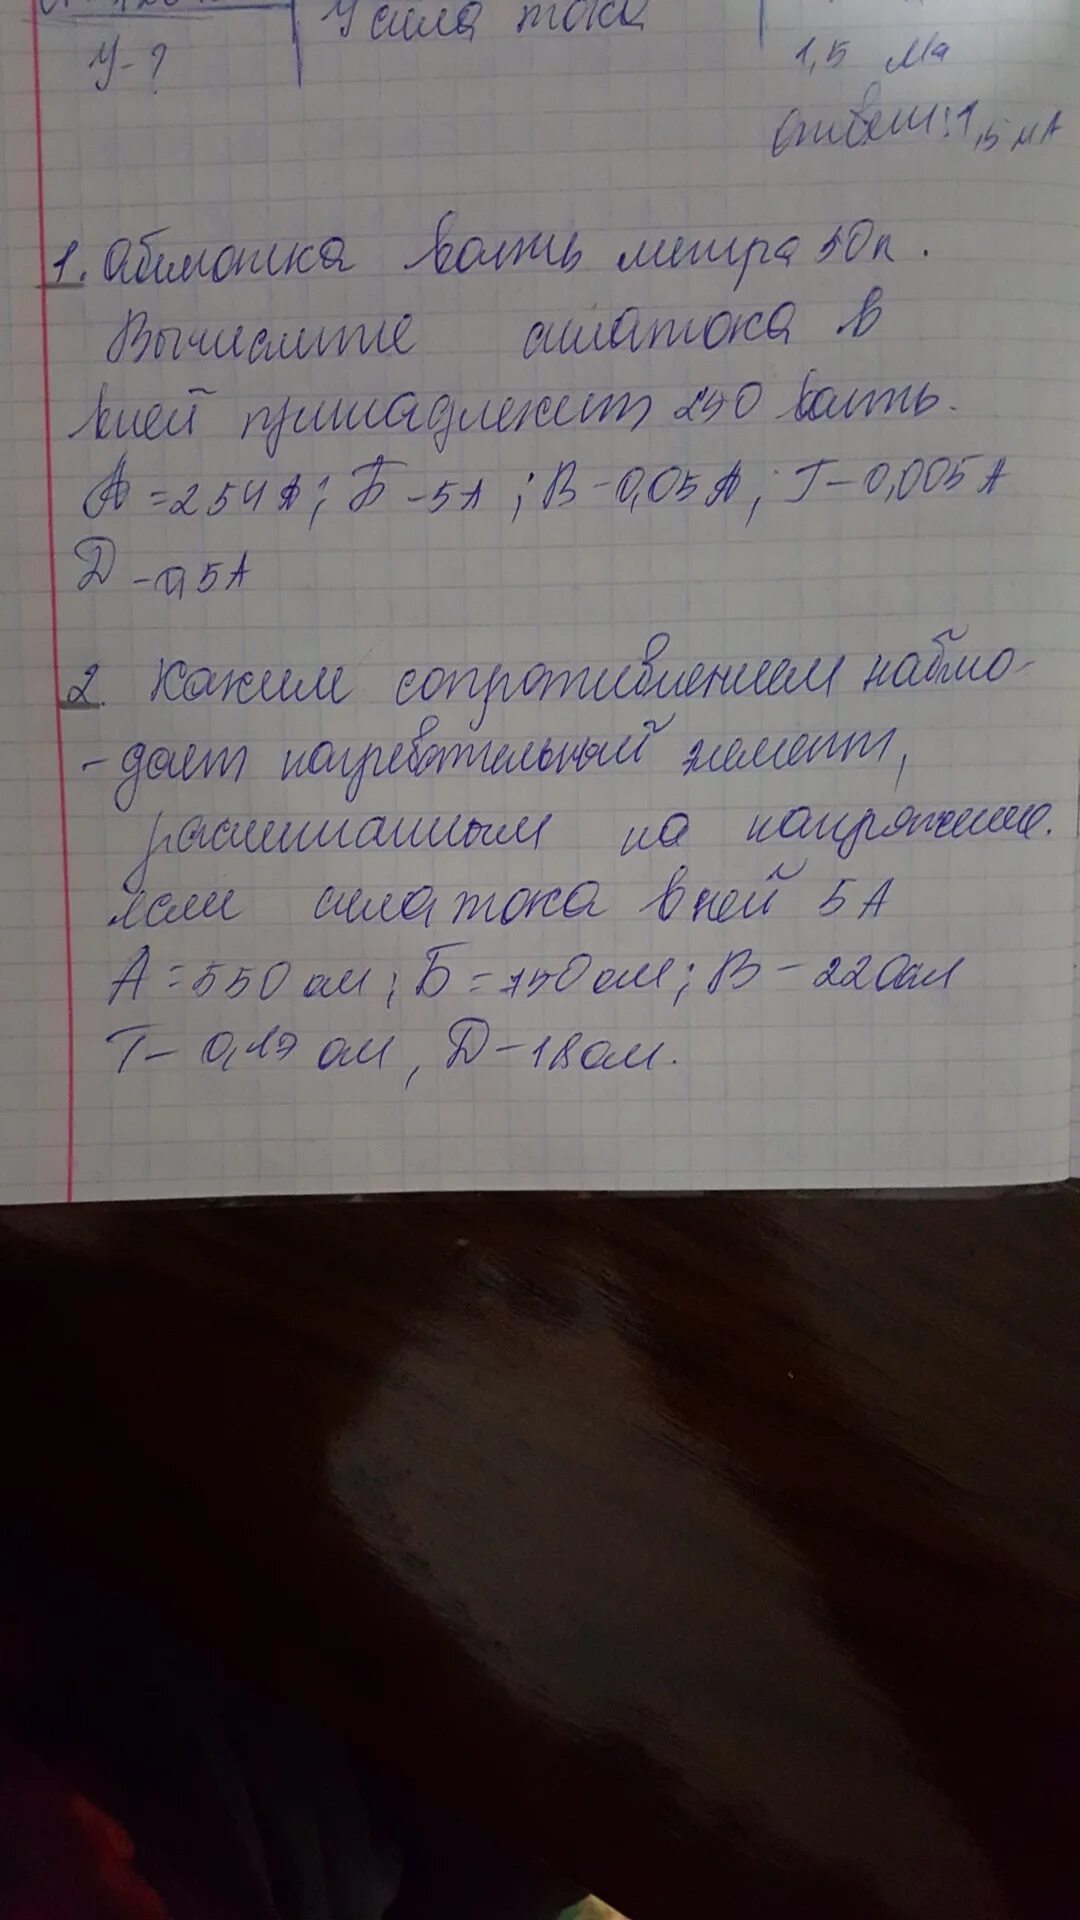 У сила тока
У-?
1,5 Ма
ответ: 1,5 мА
1. Обмотка вольть метра 50к.
Вычислите сила тока в
вней принадлежит 250 вольть.
А = 254 А; Б - 5А; В - 0,05 А; Г - 0,005 А
Д - 0,5 А
2. Каким сопротивлением наблю-
- дает нагревательный элемент,
расчитанным на напряжение.
если сила тока вней 5 А
А = 550 ом; Б = 150 ом; В - 220 ом
Г - 0,17 ом, Д - 18 ом.